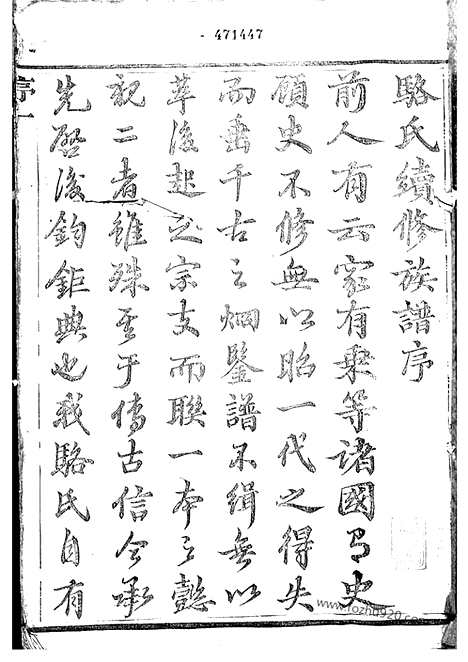 - 471447
駱氏續修族譜序
前人有云家有乘等諸國有史
顧史不修無以昭一代之得失
而垂千古之烱鑒譜不緝無以
萃後起之宗支而聯一本之懿
親二者雖殊至于傳古信今承
先啓後鈞鉅典也我駱氏自有
序一
www.fozhu920.com